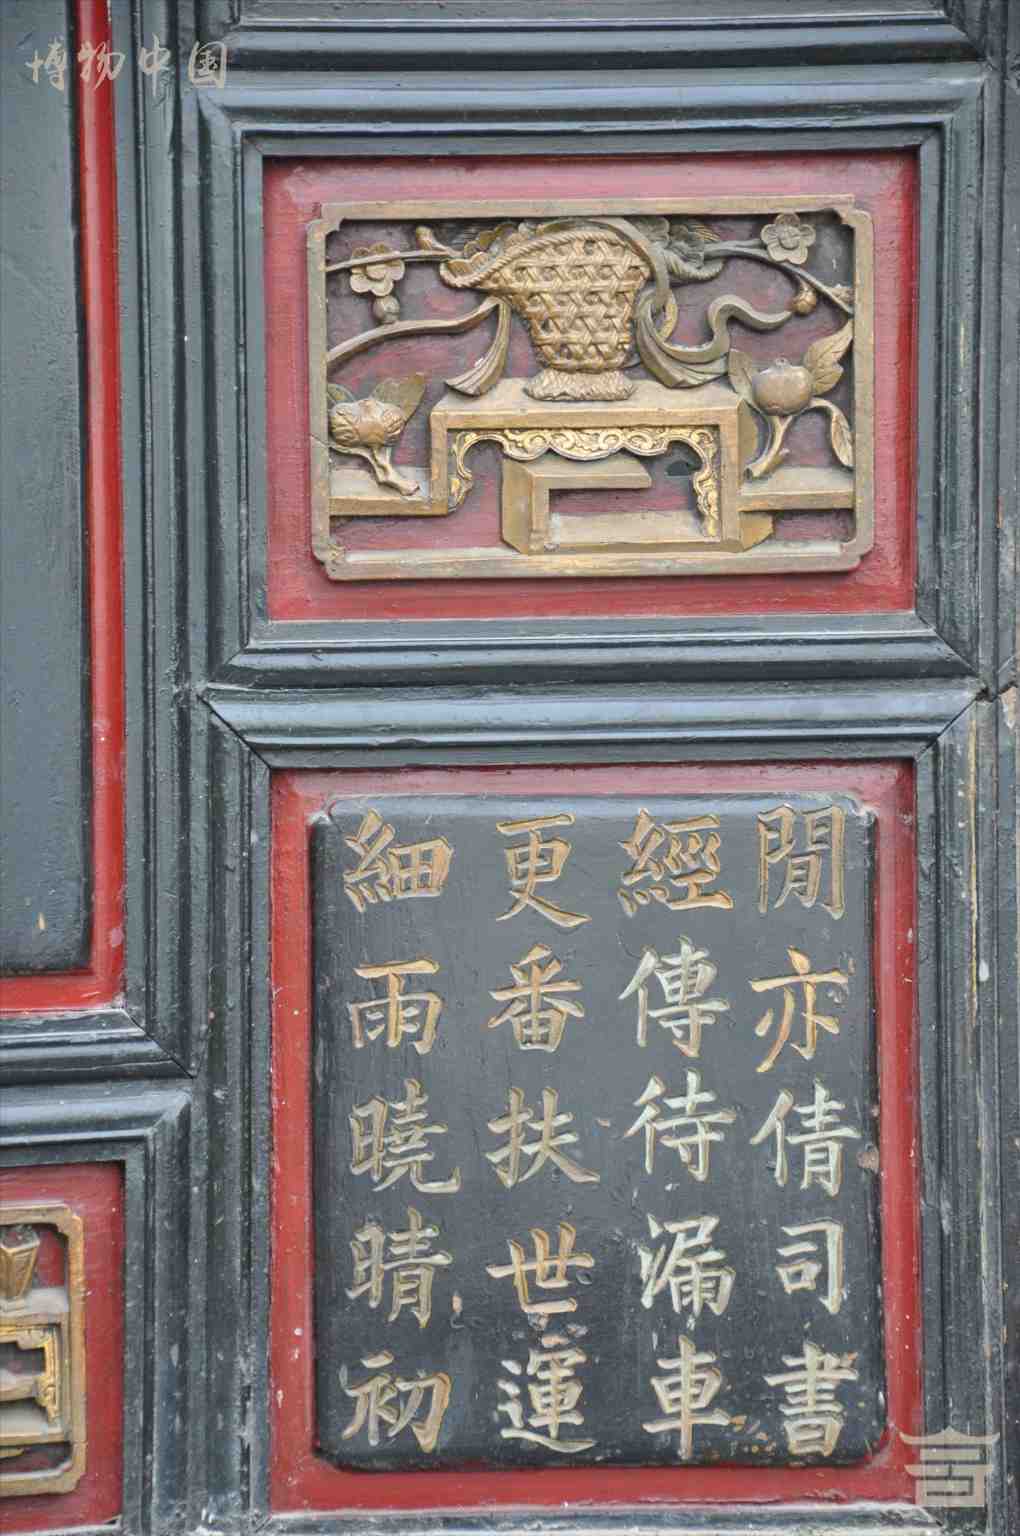 博物中国
閒亦倩司書
經傳待漏車
更番扶世運
細雨曉晴初